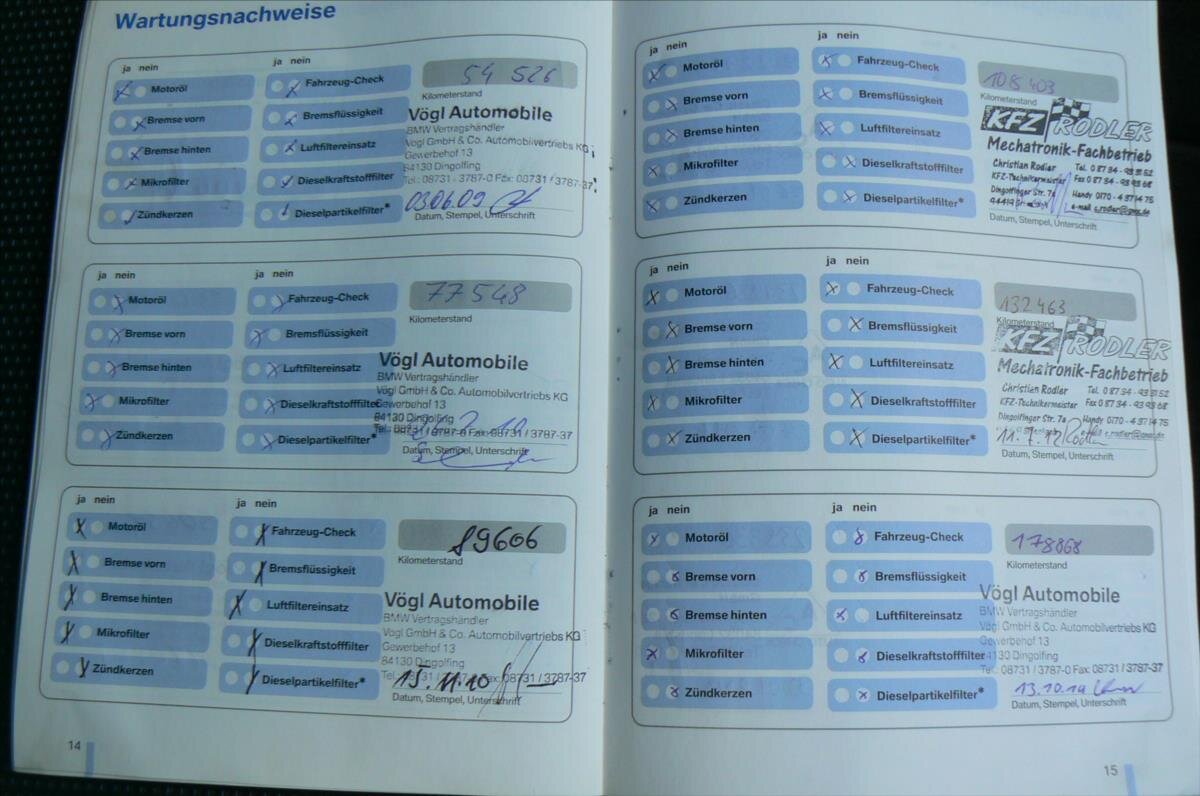 Wartungsnachweise
ja nein
ja nein
Motoröl
Fahrzeug-Check
54 526
Bremse vorn
Bremsflüssigkeit
Kilometerstand
Bremse hinten
Luftfiltereinsatz
Mikrofilter
Dieselkraftstofffilter
Zündkerzen
Dieselpartikelfilter*
Vögl Automobile
BMW Vertragshändler
Vögl GmbH & Co. Automobilvertriebs KG
Gewerbehof 13
84130 Dingolfing
Tel.: 08731 - 3787-0 Fax: 08731 / 3787-37
03.06.09
Datum, Stempel, Unterschrift
ja nein
ja nein
Motoröl
Fahrzeug-Check
77 548
Bremse vorn
Bremsflüssigkeit
Kilometerstand
Bremse hinten
Luftfiltereinsatz
Mikrofilter
Dieselkraftstofffilter
Zündkerzen
Dieselpartikelfilter*
Vögl Automobile
BMW Vertragshändler
Vögl GmbH & Co. Automobilvertriebs KG
Gewerbehof 13
84130 Dingolfing
Tel.: 08731 / 3787-0 Fax: 08731 / 3787-37
Datum, Stempel, Unterschrift
ja nein
ja nein
Motoröl
Fahrzeug-Check
89606
Bremse vorn
Bremsflüssigkeit
Kilometerstand
Bremse hinten
Luftfiltereinsatz
Mikrofilter
Dieselkraftstofffilter
Zündkerzen
Dieselpartikelfilter*
Vögl Automobile
BMW Vertragshändler
Vögl GmbH & Co. Automobilvertriebs KG
Gewerbehof 13
84130 Dingolfing
Tel.: 08731 / 3787-0 Fax: 08731 / 3787-37
15.11.10
Datum, Stempel, Unterschrift
14
ja nein
ja nein
Motoröl
Fahrzeug-Check
108 403
Bremse vorn
Bremsflüssigkeit
Kilometerstand
Bremse hinten
Luftfiltereinsatz
Mikrofilter
Dieselkraftstofffilter
Zündkerzen
Dieselpartikelfilter*
KFZ RODLER
Mechatronik-Fachbetrieb
Christian Rodler Tel. 0 87 34 - 93 31 52
KFZ-Technikermeister Fax 0 87 34 - 93 93 68
Dingolfinger Str. 7a Handy 0170 - 4 37 14 75
e-mail c.rodler@gmx.de
Datum, Stempel, Unterschrift
ja nein
ja nein
Motoröl
Fahrzeug-Check
132 463
Bremse vorn
Bremsflüssigkeit
Kilometerstand
Bremse hinten
Luftfiltereinsatz
Mikrofilter
Dieselkraftstofffilter
Zündkerzen
Dieselpartikelfilter*
KFZ RODLER
Mechatronik-Fachbetrieb
Christian Rodler Tel. 0 87 34 - 93 31 52
KFZ-Technikermeister Fax 0 87 34 - 93 93 68
Dingolfinger Str. 7a Handy 0170 - 4 37 14 75
11.7.12 Rodler
Datum, Stempel, Unterschrift
ja nein
ja nein
Motoröl
Fahrzeug-Check
178868
Bremse vorn
Bremsflüssigkeit
Kilometerstand
Bremse hinten
Luftfiltereinsatz
Mikrofilter
Dieselkraftstofffilter
Zündkerzen
Dieselpartikelfilter*
Vögl Automobile
BMW Vertragshändler
Vögl GmbH & Co. Automobilvertriebs KG
Gewerbehof 13
84130 Dingolfing
Tel.: 08731 / 3787-0 Fax: 08731 / 3787-37
13.10.14
Datum, Stempel, Unterschrift
15